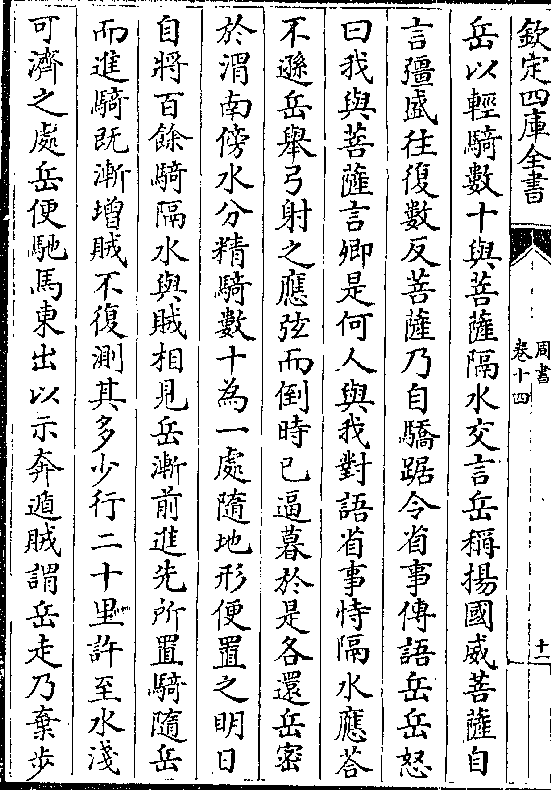 欽定四庫全書
周書
卷十四
十一
岳以輕騎數十與菩薩隔水交言岳稱揚國威菩薩自
言彊盛往復數反菩薩乃自驕踞令省事傳語岳岳怒
曰我與菩薩言卿是何人與我對語省事恃隔水應荅
不遜岳舉弓射之應弦而倒時已逼暮於是各還岳密
於渭南傍水分精騎數十為一處隨地形便置之明日
自將百餘騎隔水與賊相見岳漸前進先所置騎隨岳
而進騎既漸增賊不復測其多少行二十里許至水淺
可濟之處岳便馳馬東出以示奔遁賊謂岳走乃棄步